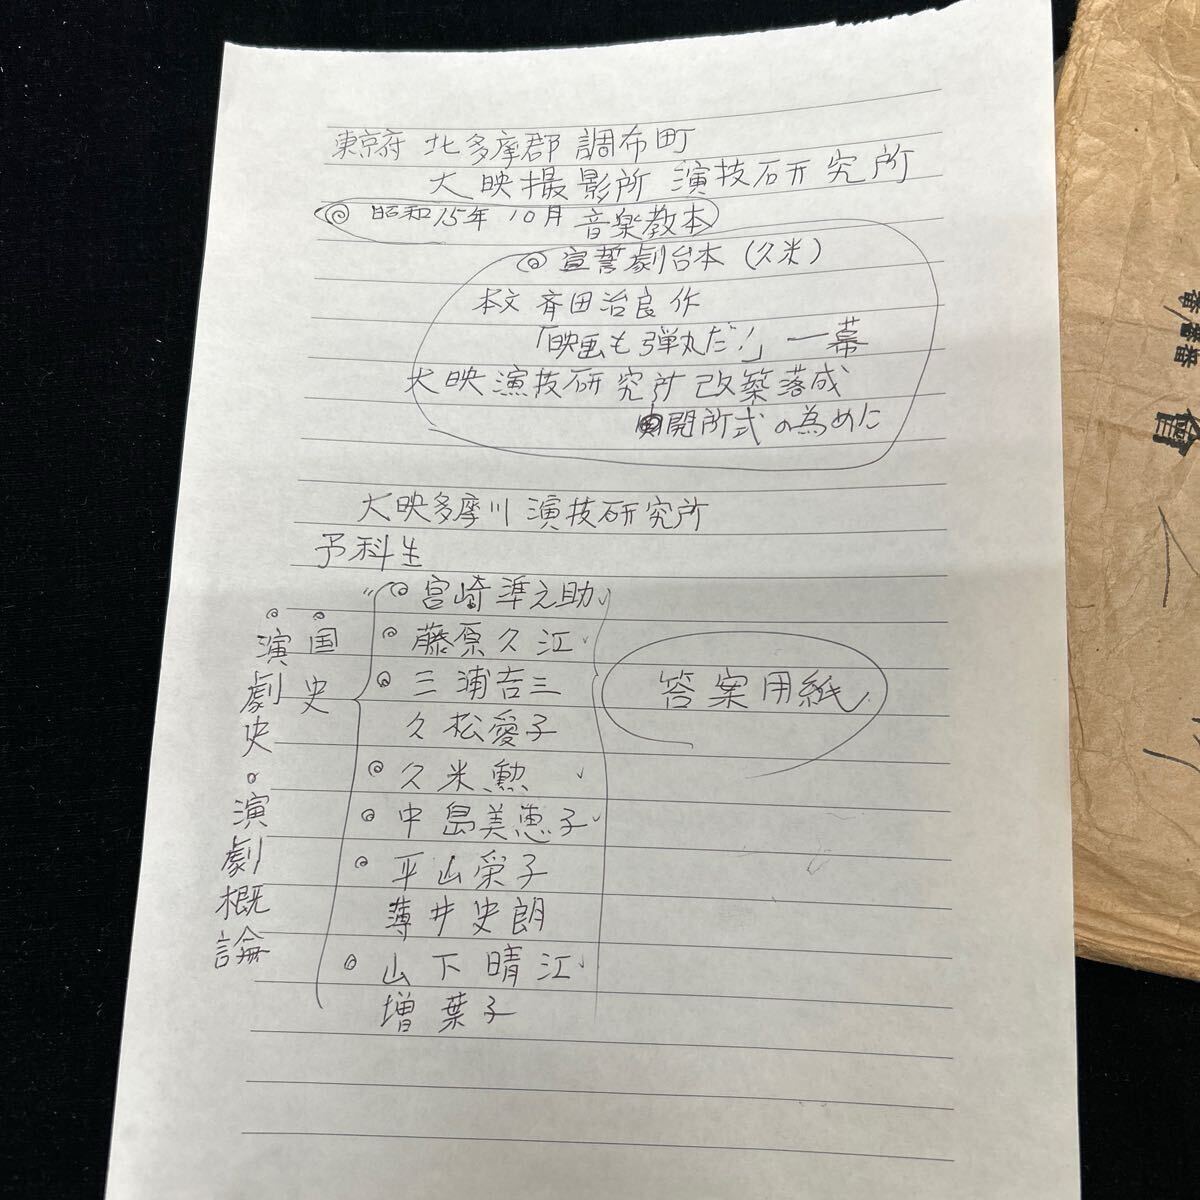 東京府 北多摩郡 調布町
大映撮影所 演技研究所
◎ 昭和15年10月 音楽教本
◎ 宣誓劇台本(久米)
本文 斉田治良作
「映画も弾丸だ!」一幕
大映演技研究所改築落成
開所式の為めに
大映多摩川 演技研究所
予科生
◎ 宮崎準之助
◎ 藤原久江
◎ 三浦吉三
久松愛子
◎ 久米勲
◎ 中島美恵子
◎ 平山栄子
薄井史朗
◎ 山下晴江
増葉子
答案用紙
◎ 国史
◎ 演劇史。演劇概論